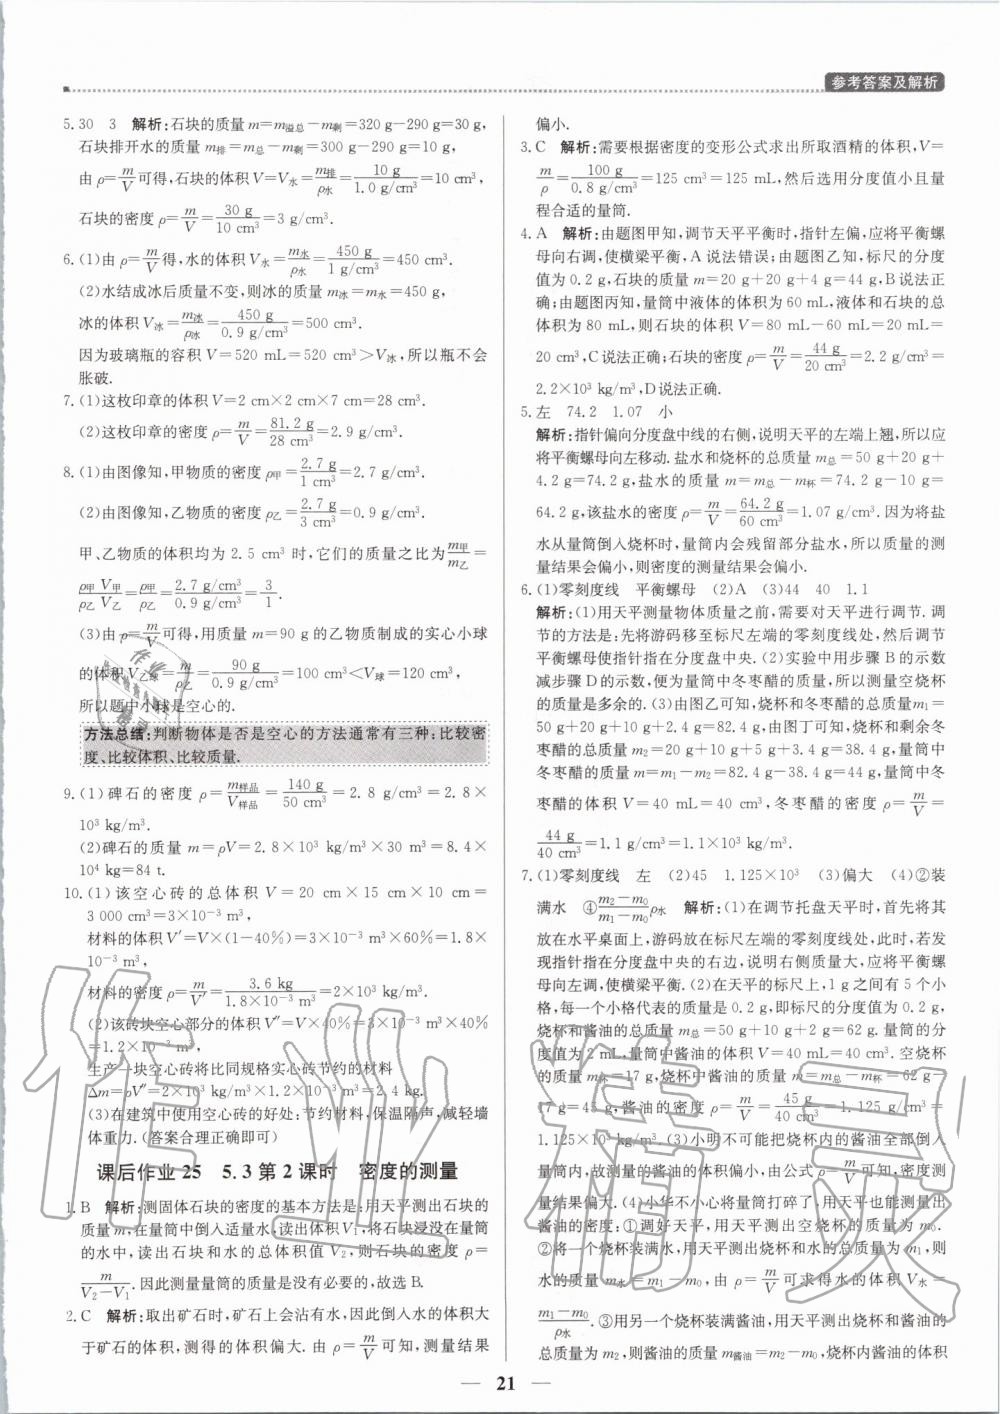 参考答案及解析
5.30 3 解析:石块的质量m=m溢总-m剩=320 g-290 g=30 g,
石块排开水的质量m排=m总-m剩=300 g-290 g=10 g,
由ρ=m/V可得,石块的体积V=V水=m排/ρ水=10 g/1.0 g/cm³=10 cm³,
石块的密度ρ=m/V=30 g/10 cm³=3 g/cm³.
6.(1)由ρ=m/V得,水的体积V水=m水/ρ水=450 g/1 g/cm³=450 cm³.
(2)水结成冰后质量不变,则冰的质量m冰=m水=450 g,
冰的体积V冰=m冰/ρ冰=450 g/0.9 g/cm³=500 cm³.
因为玻璃瓶的容积V=520 mL=520 cm³>V冰,所以瓶不会
胀破.
7.(1)这枚印章的体积V=2 cm×2 cm×7 cm=28 cm³.
(2)这枚印章的密度ρ=m/V=81.2 g/28 cm³=2.9 g/cm³.
8.(1)由图像知,甲物质的密度ρ甲=2.7 g/1 cm³=2.7 g/cm³.
(2)由图像知,乙物质的密度ρ乙=2.7 g/3 cm³=0.9 g/cm³.
甲、乙物质的体积均为2.5 cm³时,它们的质量之比为m甲/m乙=
ρ甲V甲/ρ乙V乙=ρ甲/ρ乙=2.7 g/cm³/0.9 g/cm³=3/1.
(3)由ρ=m/V可得,用质量m=90 g的乙物质制成的实心小球
的体积V乙球=m/ρ乙=90 g/0.9 g/cm³=100 cm³<V球=120 cm³,
所以题中小球是空心的.
方法总结:判断物体是否是空心的方法通常有三种:比较密
度、比较体积、比较质量.
9.(1)碑石的密度ρ=m样品/V样品=140 g/50 cm³=2.8 g/cm³=2.8×
10³ kg/m³.
(2)碑石的质量m=ρV=2.8×10³ kg/m³×30 m³=8.4×
10⁴ kg=84 t.
10.(1)该空心砖的总体积V=20 cm×15 cm×10 cm=
3 000 cm³=3×10⁻³ m³,
材料的体积V′=V×(1-40%)=3×10⁻³ m³×60%=1.8×
10⁻³ m³,
材料的密度ρ=m/V′=3.6 kg/1.8×10⁻³ m³=2×10³ kg/m³.
(2)该砖块空心部分的体积V″=V×40%=3×10⁻³ m³×40%
=1.2×10⁻³ m³,
生产一块空心砖将比同规格实心砖节约的材料
Δm=ρV″=2×10³ kg/m³×1.2×10⁻³ m³=2.4 kg.
(3)在建筑中使用空心砖的好处:节约材料,保温隔声,减轻墙
体重力.(答案合理正确即可)
课后作业25 5.3第2课时 密度的测量
1.B 解析:测固体石块的密度的基本方法是:用天平测出石块的
质量m,在量筒中倒入适量水,读出体积V₁,将石块浸没在量筒
的水中,读出石块和水的总体积值V₂,则石块的密度ρ=
m/V₂-V₁.因此测量量筒的质量是没有必要的,故选B.
2.C 解析:取出矿石时,矿石上会沾有水,因此倒入水的体积大
于矿石的体积,测得的体积偏大.由ρ=m/V可知,测量结果
偏小.
3.C 解析:需要根据密度的变形公式求出所取酒精的体积,V=
m/ρ=100 g/0.8 g/cm³=125 cm³=125 mL,然后选用分度值小且量
程合适的量筒.
4.A 解析:由题图甲知,调节天平平衡时,指针左偏,应将平衡螺
母向右调,使横梁平衡,A说法错误;由题图乙知,标尺的分度
值为0.2 g,石块的质量m=20 g+20 g+4 g=44 g,B说法正
确;由题图丙知,量筒中液体的体积为60 mL,液体和石块的总
体积为80 mL,则石块的体积V=80 mL-60 mL=20 mL=
20 cm³,C说法正确;石块的密度ρ=m/V=44 g/20 cm³=2.2 g/cm³=
2.2×10³ kg/m³,D说法正确.
5.左 74.2 1.07 小
解析:指针偏向分度盘中线的右侧,说明天平的左端上翘,所以应
将平衡螺母向左移动.盐水和烧杯的总质量m总=50 g+20 g+
4.2 g=74.2 g,盐水的质量m=m总-m杯=74.2 g-10 g=
64.2 g,该盐水的密度ρ=m/V=64.2 g/60 cm³=1.07 g/cm³.因为将盐
水从量筒倒入烧杯时,量筒内会残留部分盐水,所以质量的测
量结果会偏小,则密度的测量结果会偏小.
6.(1)零刻度线 平衡螺母 (2)A (3)44 40 1.1
解析:(1)用天平测量物体质量之前,需要对天平进行调节.调
节的方法是:先将游码移至标尺左端的零刻度线处,然后调节
平衡螺母使指针指在分度盘中央.(2)实验中用步骤B的示数
减步骤D的示数,便为量筒中冬枣醋的质量,所以测量空烧杯
的质量是多余的.(3)由图乙可知,烧杯和冬枣醋的总质量m₁=
50 g+20 g+10 g+2.4 g=82.4 g,由图丁可知,烧杯和剩余冬
枣醋的质量m₂=20 g+10 g+5 g+3.4 g=38.4 g,量筒中
冬枣醋的质量m=m₁-m₂=82.4 g-38.4 g=44 g,量筒中冬
枣醋的体积V=40 mL=40 cm³,冬枣醋的密度ρ=m/V=
44 g/40 cm³=1.1 g/cm³=1.1×10³ kg/m³.
7.(1)零刻度线 左 (2)45 1.125×10³ (3)偏大 (4)②装
满水 ④m₂-m₀/m₁-m₀ρ水 解析:(1)在调节托盘天平时,首先将其
放在水平桌面上,游码放在标尺左端的零刻度线处,此时,若发
现指针指在分度盘中央的右边,说明右侧质量大,应将平衡螺
母向左调,使横梁平衡.(2)在天平的标尺上,1 g之间有5个小
格,每一个小格代表的质量是0.2 g,即标尺的分度值为0.2 g,
烧杯和酱油的总质量m总=50 g+10 g+2 g=62 g.量筒的分
度值为2 mL,量筒中酱油的体积V=40 mL=40 cm³.空烧杯
的质量m杯=17 g,烧杯中酱油的质量m=m总-m杯=62 g-
17 g=45 g,酱油的密度ρ=m/V=45 g/40 cm³=1.125 g/cm³=
1.125×10³ kg/m³.(3)小明不可能把烧杯内的酱油全部倒入
量筒内,故测量的酱油的体积偏小,由公式ρ=m/V可知,密度测
量结果偏大.(4)小华不小心将量筒打碎了,用天平也能测量出
酱油的密度:①调好天平,用天平测出空烧杯的质量为m₀.
②将一个烧杯装满水,用天平测出烧杯和水的总质量为m₁,则
水的质量m水=m₁-m₀,由ρ=m/V可求得水的体积V水=
m₁-m₀/ρ水.③用另一个烧杯装满牛酱油,用天平测出烧杯和酱油的
总质量为m₂,则酱油的质量m酱油=m₂-m₀,烧杯内酱油的体积
21
作业精灵
作业精灵